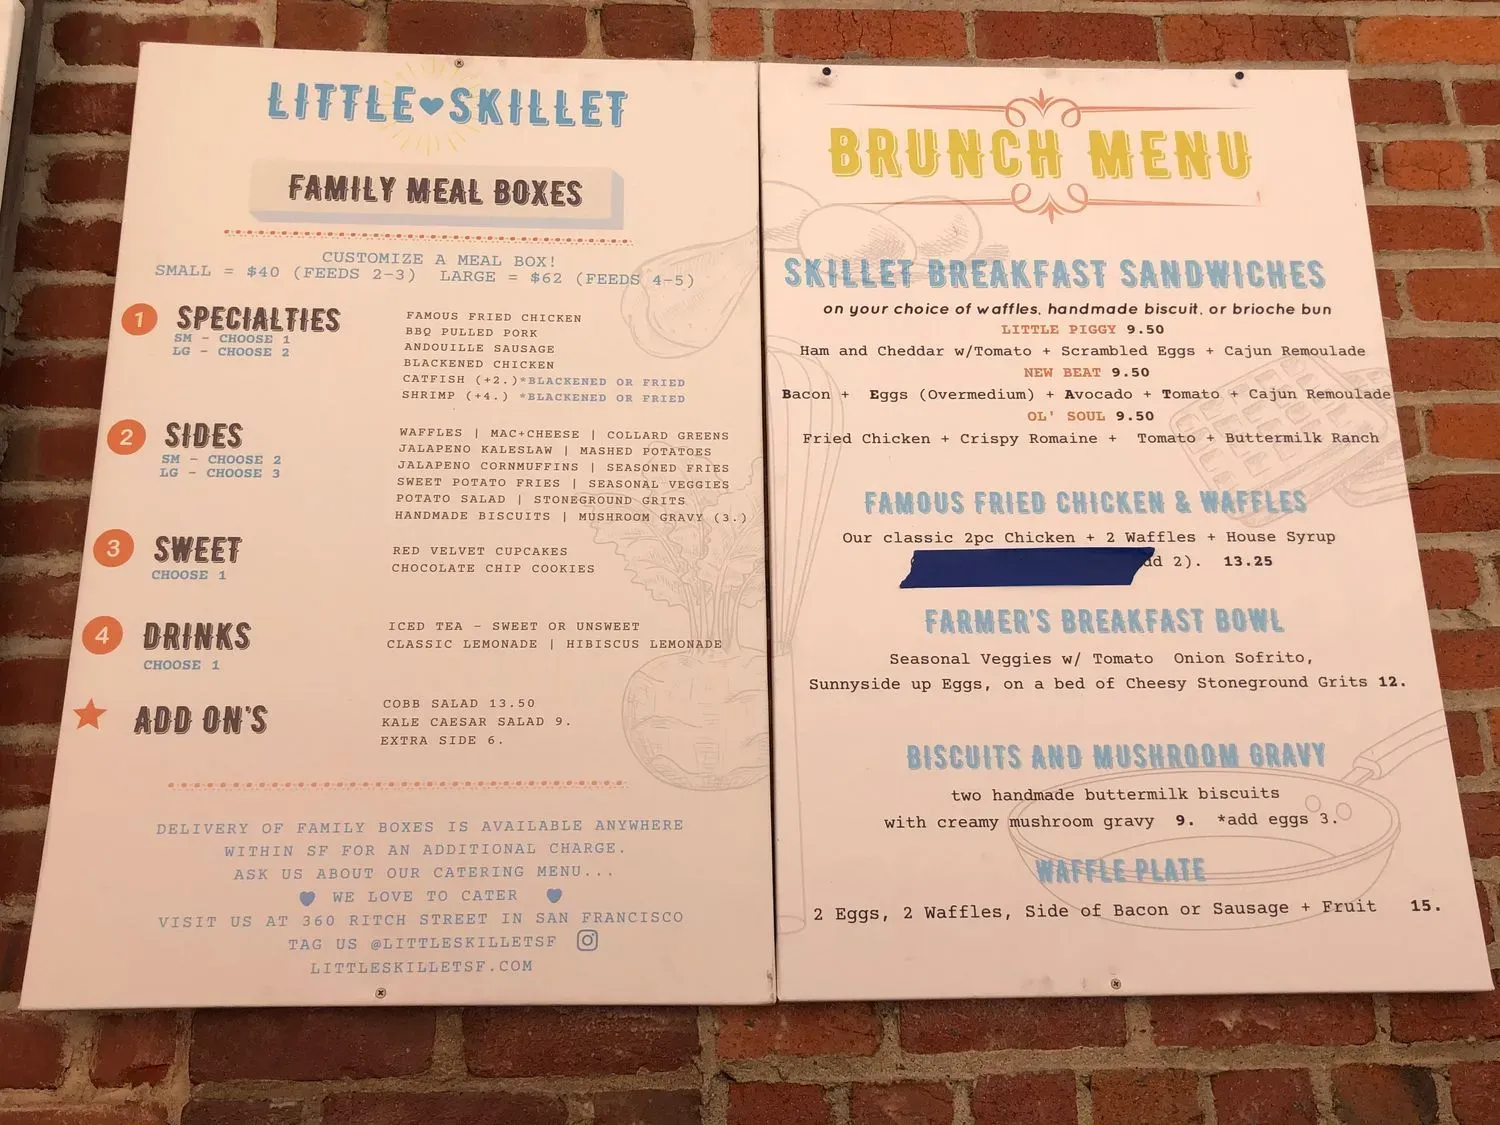 LITTLE SKILLET
FAMILY MEAL BOXES
CUSTOMIZE A MEAL BOX!
SMALL = $40 (FEEDS 2-3) LARGE = $62 (FEEDS 4-5)
1 SPECIALTIES
SM - CHOOSE 1
LG - CHOOSE 2
FAMOUS FRIED CHICKEN
BBQ PULLED PORK
ANDOUILLE SAUSAGE
BLACKENED CHICKEN
CATFISH (+2.)*BLACKENED OR FRIED
SHRIMP (+4.) *BLACKENED OR FRIED
2 SIDES
SM - CHOOSE 2
LG - CHOOSE 3
WAFFLES | MAC+CHEESE | COLLARD GREENS
JALAPENO KALESLAW | MASHED POTATOES
JALAPENO CORNMUFFINS | SEASONED FRIES
SWEET POTATO FRIES | SEASONAL VEGGIES
POTATO SALAD | STONEGROUND GRITS
HANDMADE BISCUITS | MUSHROOM GRAVY (3.)
3 SWEET
CHOOSE 1
RED VELVET CUPCAKES
CHOCOLATE CHIP COOKIES
4 DRINKS
CHOOSE 1
ICED TEA - SWEET OR UNSWEET
CLASSIC LEMONADE | HIBISCUS LEMONADE
ADD ON'S
COBB SALAD 13.50
KALE CAESAR SALAD 9.
EXTRA SIDE 6.
DELIVERY OF FAMILY BOXES IS AVAILABLE ANYWHERE
WITHIN SF FOR AN ADDITIONAL CHARGE.
ASK US ABOUT OUR CATERING MENU...
WE LOVE TO CATER
VISIT US AT 360 RITCH STREET IN SAN FRANCISCO
TAG US @LITTLESKILLETSF
LITTLESKILLETSF.COM
BRUNCH MENU
SKILLET BREAKFAST SANDWICHES
on your choice of waffles, handmade biscuit, or brioche bun
LITTLE PIGGY 9.50
Ham and Cheddar w/Tomato + Scrambled Eggs + Cajun Remoulade
NEW BEAT 9.50
Bacon + Eggs (Overmedium) + Avocado + Tomato + Cajun Remoulade
OL' SOUL 9.50
Fried Chicken + Crispy Romaine + Tomato + Buttermilk Ranch
FAMOUS FRIED CHICKEN & WAFFLES
Our classic 2pc Chicken + 2 Waffles + House Syrup
2). 13.25
FARMER'S BREAKFAST BOWL
Seasonal Veggies w/ Tomato Onion Sofrito,
Sunnyside up Eggs, on a bed of Cheesy Stoneground Grits 12.
BISCUITS AND MUSHROOM GRAVY
two handmade buttermilk biscuits
with creamy mushroom gravy 9. *add eggs 3.
WAFFLE PLATE
2 Eggs, 2 Waffles, Side of Bacon or Sausage + Fruit 15.